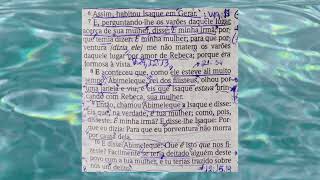 6 Assim, habitou Isaque em Gerar.
7 E, perguntando-lhe os varões daquele lugar
acerca de sua mulher, disse: É minha irmã; por-
que temia dizer: É minha mulher; para que por-
ventura (dizia ele) me não matem os varões
daquele lugar por amor de Rebeca; porque era
formosa à vista.
8 E aconteceu que, como ele esteve ali muito
tempo, Abimeleque, rei dos filisteus, olhou por
uma janela e viu, e eis que Isaque estava brin-
cando com Rebeca, sua mulher.
9 Então, chamou Abimeleque a Isaque e disse:
Eis que, na verdade, é tua mulher; como, pois,
disseste: É minha irmã? E disse-lhe Isaque: Por-
que eu dizia: Para que eu porventura não morra
por causa dela.
10 E disse Abimeleque: Que é isto que nos fi-
zeste? Facilmente se teria deitado alguém deste
povo com a tua mulher, e tu terias trazido sobre
nós um delito.